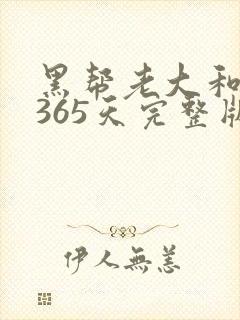 黑帮老大和
365天完整版
伊人無恙